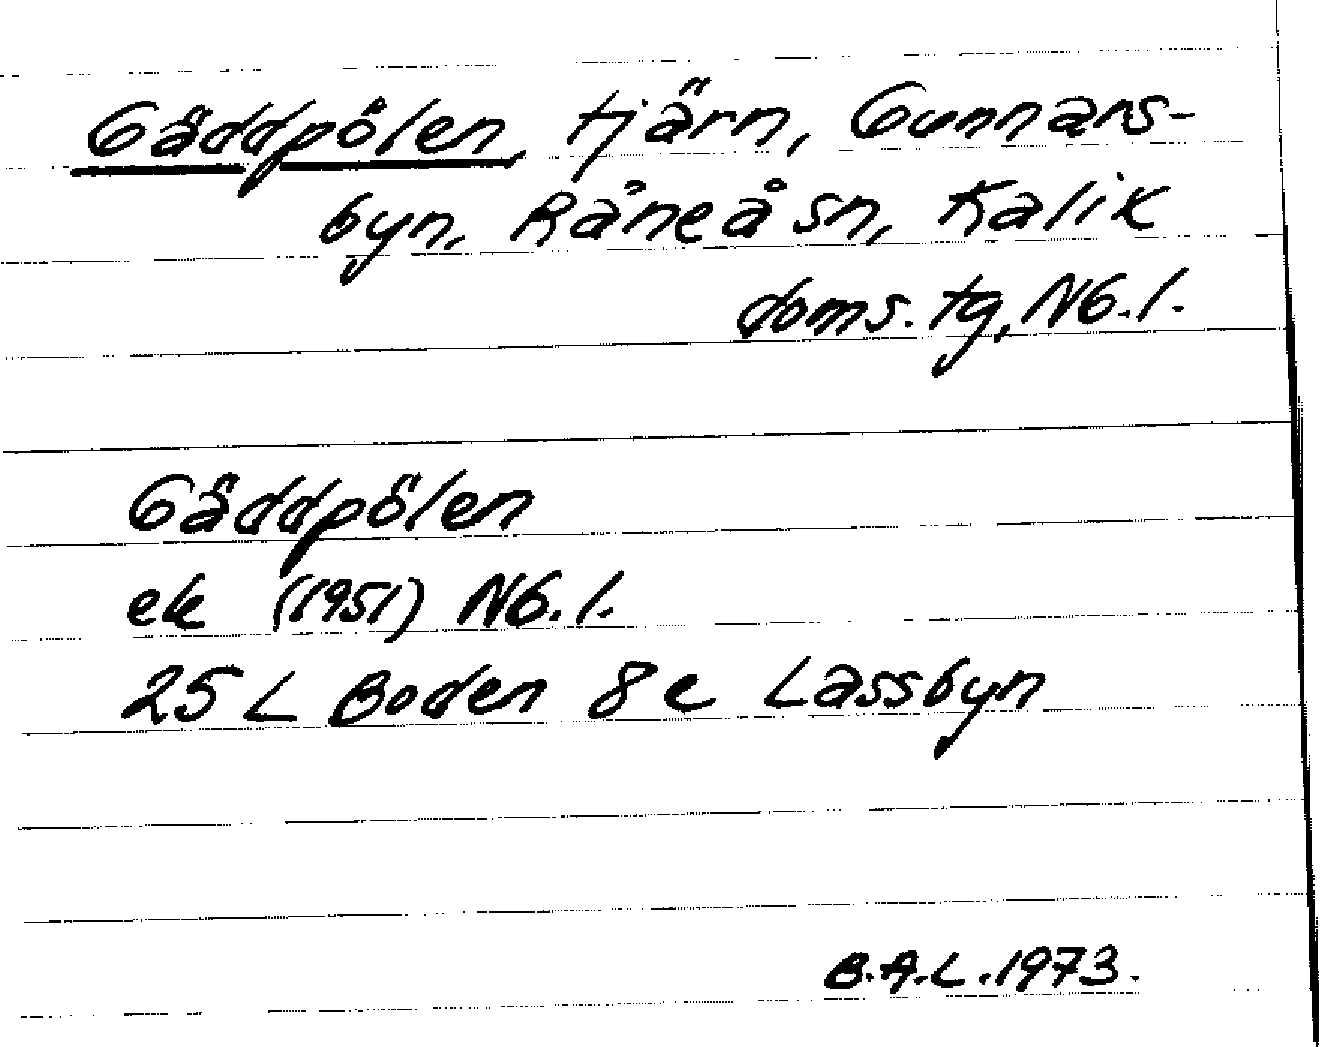 Gäddpölen, tjärn, Gunnars-
byn, Råneå sn, Kalix
doms. tg, NB. l.
Gäddpölen
ek (1951) NB. l.
25 L Boden 8 e Lassbyn
B.A.L. 1973.